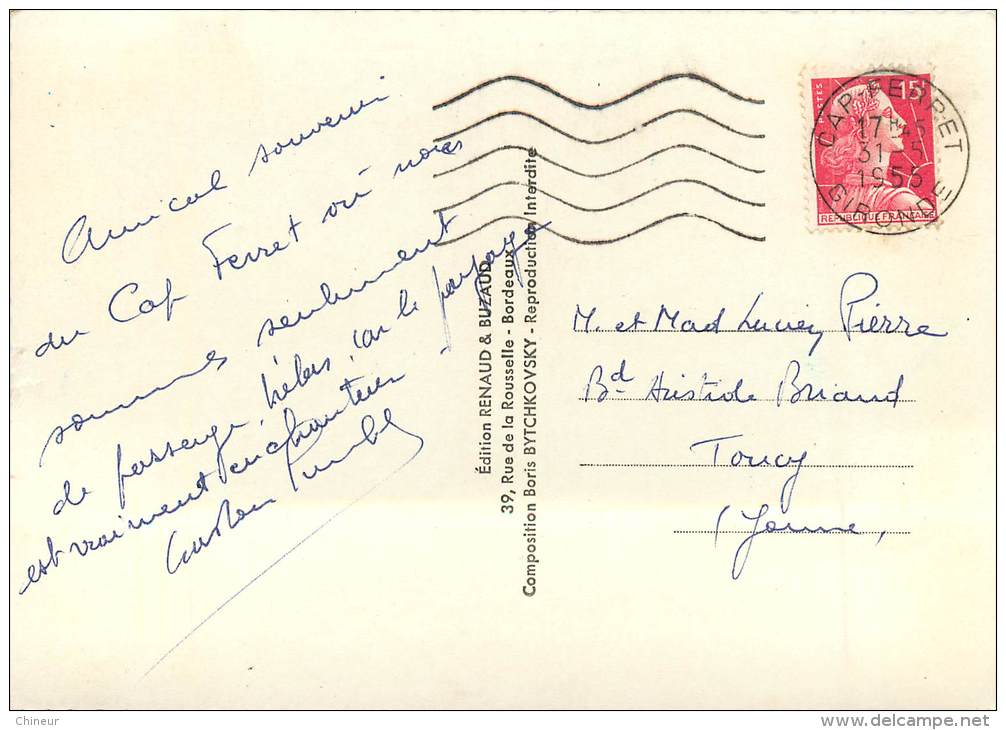 Amical souvenir
du Cap Ferret où nous
sommes seulement
de passage, hélas, car le paysage
est vraiment enchanteur
Gaston
Édition RENAUD & BUZAUD
39, Rue de la Rousselle - Bordeaux
Composition Boris BYTCHKOVSKY - Reproduction Interdite
POSTES
15F
REPUBLIQUE FRANÇAISE
CAP-FERRET
17H45
31-5
1955
GIRONDE
M. et Mad Lucien Pierre
Bd Aristide Briand
Toucy
(Yonne)
Chineur
www.delcampe.net